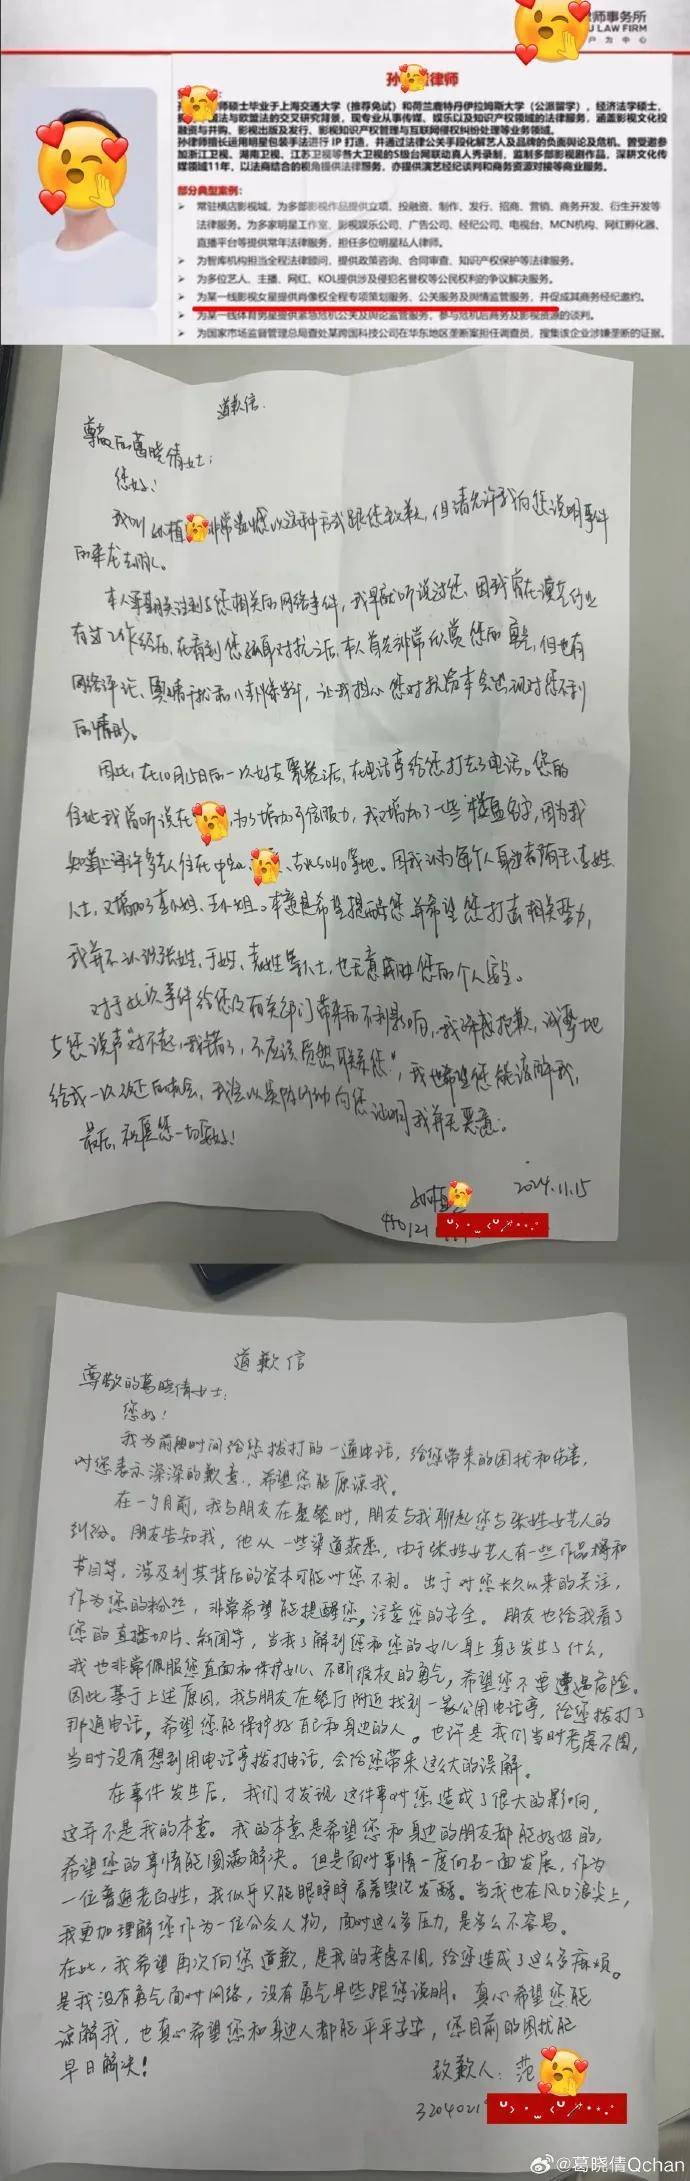 师事务所
U LAW FIRM
户 为 中 心
孙 律师
师硕士毕业于上海交通大学（推荐免试）和荷兰鹿特丹伊拉姆斯大学（公派留学），经济法学硕士，
法与欧盟法的交叉研究背景，现专业从事传媒、娱乐以及知识产权领域的法律服务，涵盖影视文化投
融资与并购、影视出版及发行、影视知识产权管理与互联网侵权纠纷处理等业务领域。
孙律师擅长运用明星包装手法进行 IP 打造，并通过法律公关手段化解艺人及品牌的负面舆论及危机。曾受邀参
加浙江卫视、湖南卫视、江苏卫视等各大卫视的S级台网联动真人秀录制，监制多部影视剧作品，深耕文化传
媒领域11年，以法商结合的视角提供法律服务，亦提供演艺经纪谈判和商务资源对接等商业服务。
部分典型案例：
常驻横店影视城，为多部影视作品提供立项、投融资、制作、发行、招商、营销、商务开发、衍生开发等
法律服务。为多家明星工作室、影视娱乐公司、广告公司、经纪公司、电视台、MCN机构、网红孵化器、
直播平台等提供常年法律服务，担任多位明星私人律师。
为智库机构担当全程法律顾问，提供政策咨询、合同审查、知识产权保护等法律服务。
为多位艺人、主播、网红、KOL提供涉及侵犯名誉权等公民权利的争议解决服务。
为某一线影视女星提供肖像权全程专项策划服务、公关服务及舆情监管服务，并促成其商务经纪邀约。
为某一线体育男星提供紧急危机公关及舆论监管服务，参与危机后商务及影视资源的谈判。
为国家市场监督管理总局查处某跨国科技公司在华东地区垄断案担任调查员，搜集该企业涉嫌垄断的证据。
道歉信
尊敬的葛晓倩女士：
您好！
我叫孙植 非常 以这种方式跟您致歉，但请允许我向您说明事件
的来龙去脉。
本人 关注到与您相关的网络事件，我早就听说过您，因我曾在演艺行业
有过工作经历，在看到您 对抗之后，本人首先非常欣赏您的勇气，但也有
网络评论、舆情干扰 ，让我担心您对抗 会出现对您不利
的情形。
因此，在10月15日的一次好友聚餐后，在电话亭给您打去了电话。您的
住址我曾听说在 ，为了增加可信服力，我又增加了一些“楼盘名字，因为我
知道 许多 人住在中 、 、 SOHO等地。因我认为每个人身边都有王、李姓
人士，又增加了李小姐、王小姐。本意是希望提醒您并希望您打击相关势力，
我并不认识张姓、于姓、 姓等人士，也无意威胁您的个人安全。
对于此次事件给您及有关部门带来的不利影响，我深感抱歉，诚挚地
与您说声“对不起，我错了，不应该贸然联系您”，我也希望您能谅解我，
给我一次改正的机会，我会以实际行动向您证明我并无恶意。
最后，祝愿您一切安好！
孙植
2024.11.15
450121
道歉信
尊敬的葛晓倩女士：
您好！
我为前段时间给您拨打的一通电话，给您带来的困扰和伤害，
对您表示深深的歉意，希望您能原谅我。
在一个月前，我与朋友在聚餐时，朋友与我聊起您与张姓女艺人的
纠纷。朋友告知我，他从一些渠道获悉，由于张姓女艺人有一些作品 和
节目等，涉及到其背后的资本可能对您不利。出于对您长久以来的关注，
作为您的粉丝，非常希望能提醒您，注意您的安全。朋友也给我看了
您的直播切片、新闻等，当我了解到您和您的女儿身上真正发生了什么，
我也非常佩服您直面和保护女儿、不断维权的勇气，希望您不要遭遇危险。
因此基于上述原因，我与朋友在餐厅附近找到一家公用电话亭，给您拨打了
那通电话，希望您能保护好自己和身边的人。也许是我们当时考虑不周，
当时没有想到用电话亭拨打电话，会给您带来这么大的误解。
在事件发生后，我们才发现这件事对您造成了很大的影响，
这并不是我的本意。我的本意是希望您和身边的朋友都能好好的，
希望您的事情能圆满解决。但是面对事情一度向另一面发展，作为
一位普通老百姓，我似乎只能眼睁睁看着舆论发酵。当我也在风口浪尖上，
我更加理解您作为一位公众人物，面对这么多压力，是多么不容易。
在此，我希望再次向您道歉，是我的考虑不周，给您造成了这么多麻烦。
是我没有勇气面对网络，没有勇气早些跟您说明。真心希望您能
谅解我，也真心希望您和身边人都能平平安安，您目前的困扰能
早日解决！
致歉人：范
3204021
@葛晓倩Qchan